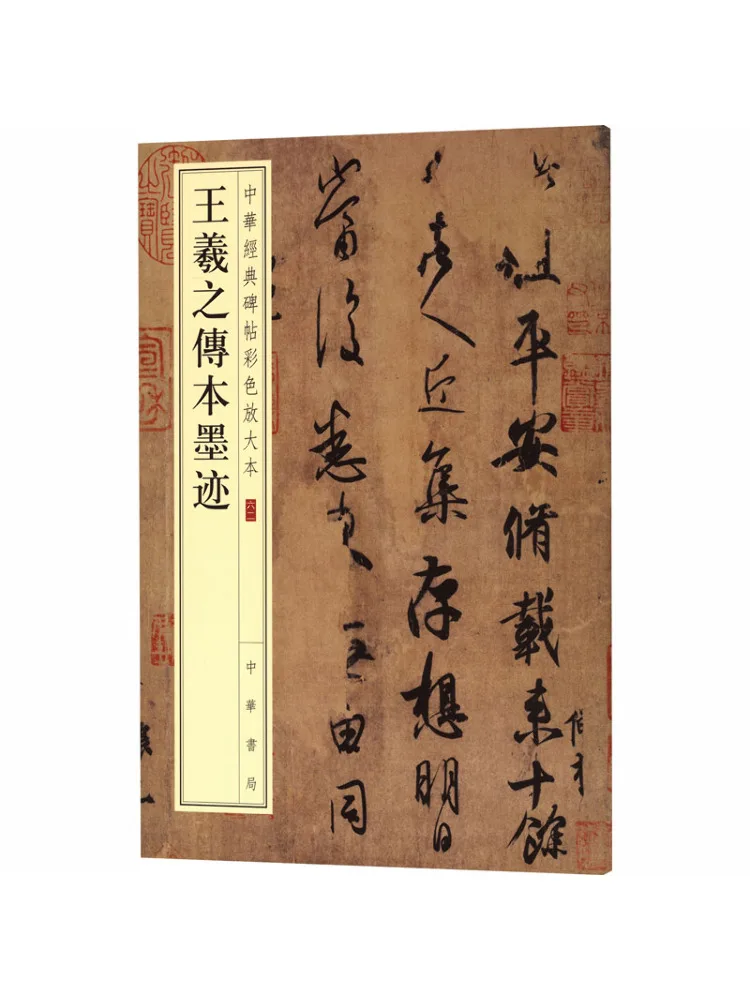 王羲之傳本墨迹
中華經典碑帖彩色放大本
六二
中華書局
此粗平安脩載来十餘
諸人近集存想明日
當復悉来無由同